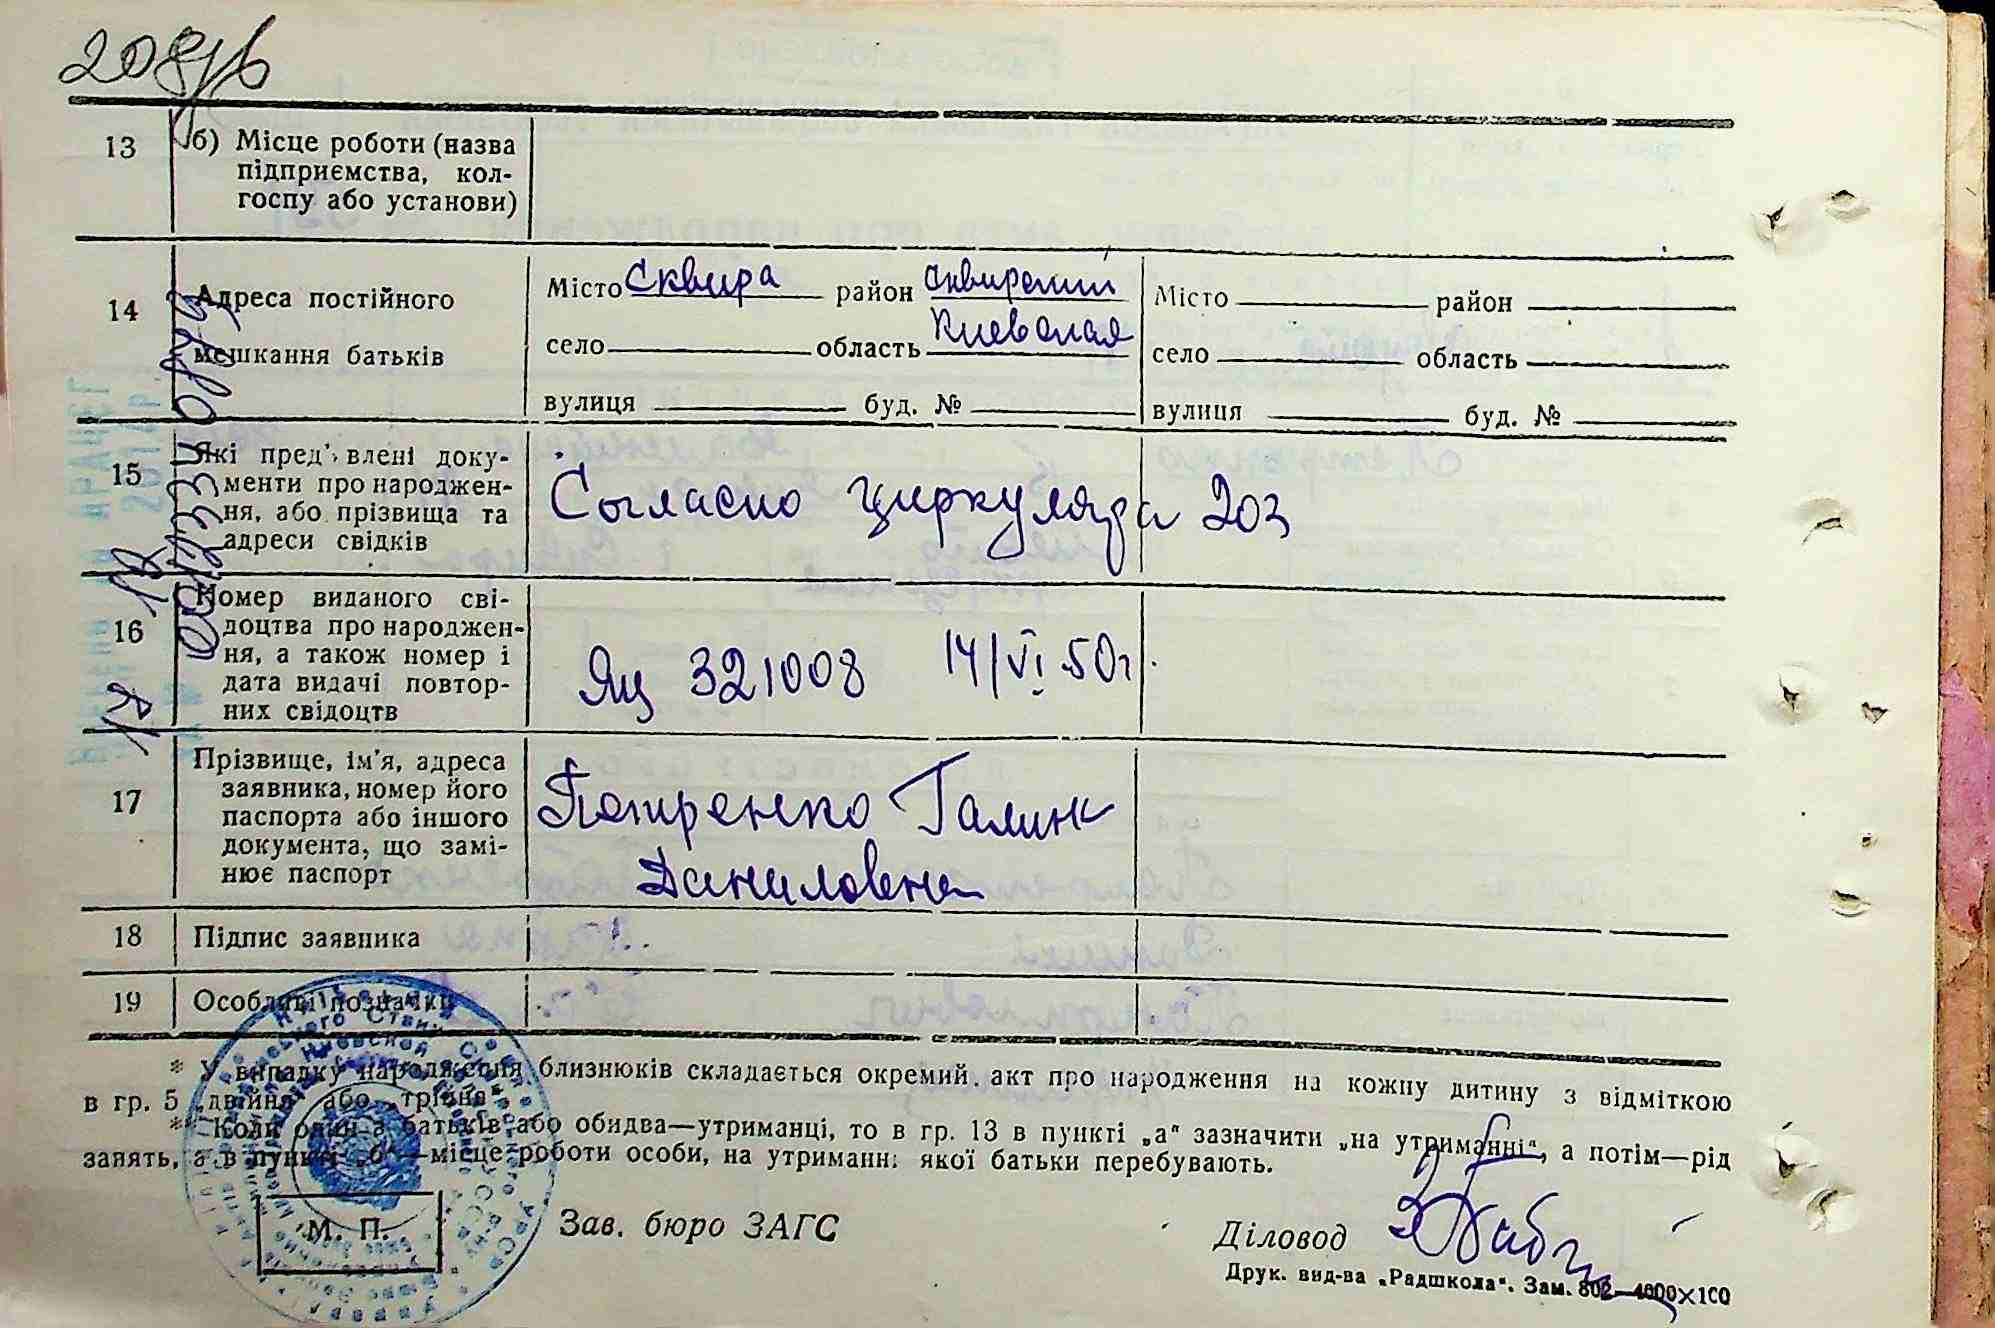 208
13
б) Місце роботи (назва
підприємства, кол-
госпу або установи)
14
Адреса постійного
мешкання батьків
Місто Сквира район Сквирский
село область Киевская
вулиця буд. №
Місто район
село область
вулиця буд. №
15
Які пред'влені доку-
менти про народжен-
ня, або прізвища та
адреси свідків
Согласно циркуляра 203
16
Номер виданого сві-
доцтва про народжен-
ня, а також номер і
дата видачі повтор-
них свідоцтв
ЯЦ 321008 14/VI 50 г.
17
Прізвище, ім'я, адреса
заявника, номер його
паспорта або іншого
документа, що замі-
нює паспорт
Петренко Галина
Даниловна
18
Підпис заявника
19
Особливі позначки
* У випадку народження близнюків складається окремий акт про народження на кожну дитину з відміткою
в гр. 5 „двійня" або „трійня"
** Коли один з батьків або обидва—утриманці, то в гр. 13 в пункті „а" зазначити „на утриманні", а потім—рід
занять, а в пункті „б"—місце роботи особи, на утриманні якої батьки перебувають.
М. П.
Зав. бюро ЗАГС
Діловод
Друк. вид-ва „Радшкола". Зам. 802—4000×100